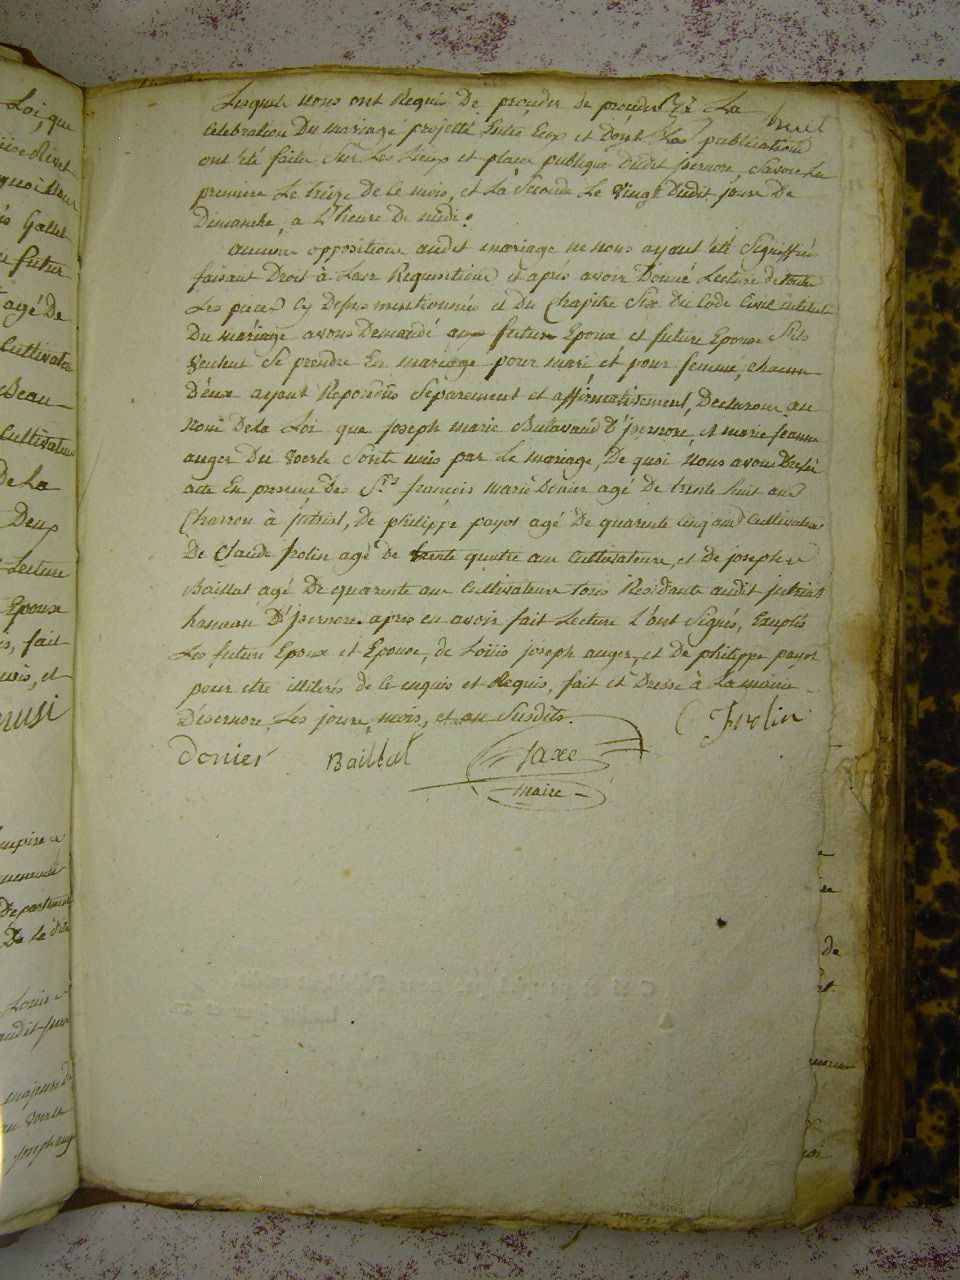 Lesquels nous ont Requis De procéder de procéder à La
Celebration Du mariage projetté Entre Eux et Dont Les publications
ont été faites Sur Les Lieux et place publique dudit jsernore, Savoir La
premiere Le treize de Ce mois, et La Seconde Le Vingt Dudit jour De
Dimanche, a L'heure De midi.
aucune opposition audit mariage ne nous ayant été Signiffié
faisant Droit à Leur Requisition et après avoir Donné Lecture de toute
Les pieces Cy Desus mentionnées et du Chapitre Six du Code Civil intitulé
Du mariage avons Demandé au futur Epoux, et future Epouse S'ils
veulent Se prendre En mariage pour mari et pour femme, chacun
D'eux ayant Repondus Séparement et affirmativement, Declarons au
nom De La Loi que joseph marie Butavand D'jsernore, et marie jeanne
auger Du voerle Sont unis par Le mariage, De quoi Nous avons Dressé
acte En presence Des Srs françois marie Donier agé De trente huit ans
Charron à jntriat, De philippe payot agé De quarente Cinq ans Cultivateur
De Claude Frolin agé de trente quatre ans Cultivateur, et De joseph
Baillat agé De quarente ans Cultivateur tous Residants audit jntriat
hameau D'jsernore. apres en avoir fait Lecture L'ont Signés, Exeptés
Les future Epoux et Epouse, de Loüis joseph auger, et De philippe payot
pour etre illiterés de Ce enquis et Requis, fait et Dressé à La mairie
D'jsernore, Les jours, mois, et an Susdits.
C Frolin
Donier Baillat Jaxe
maire